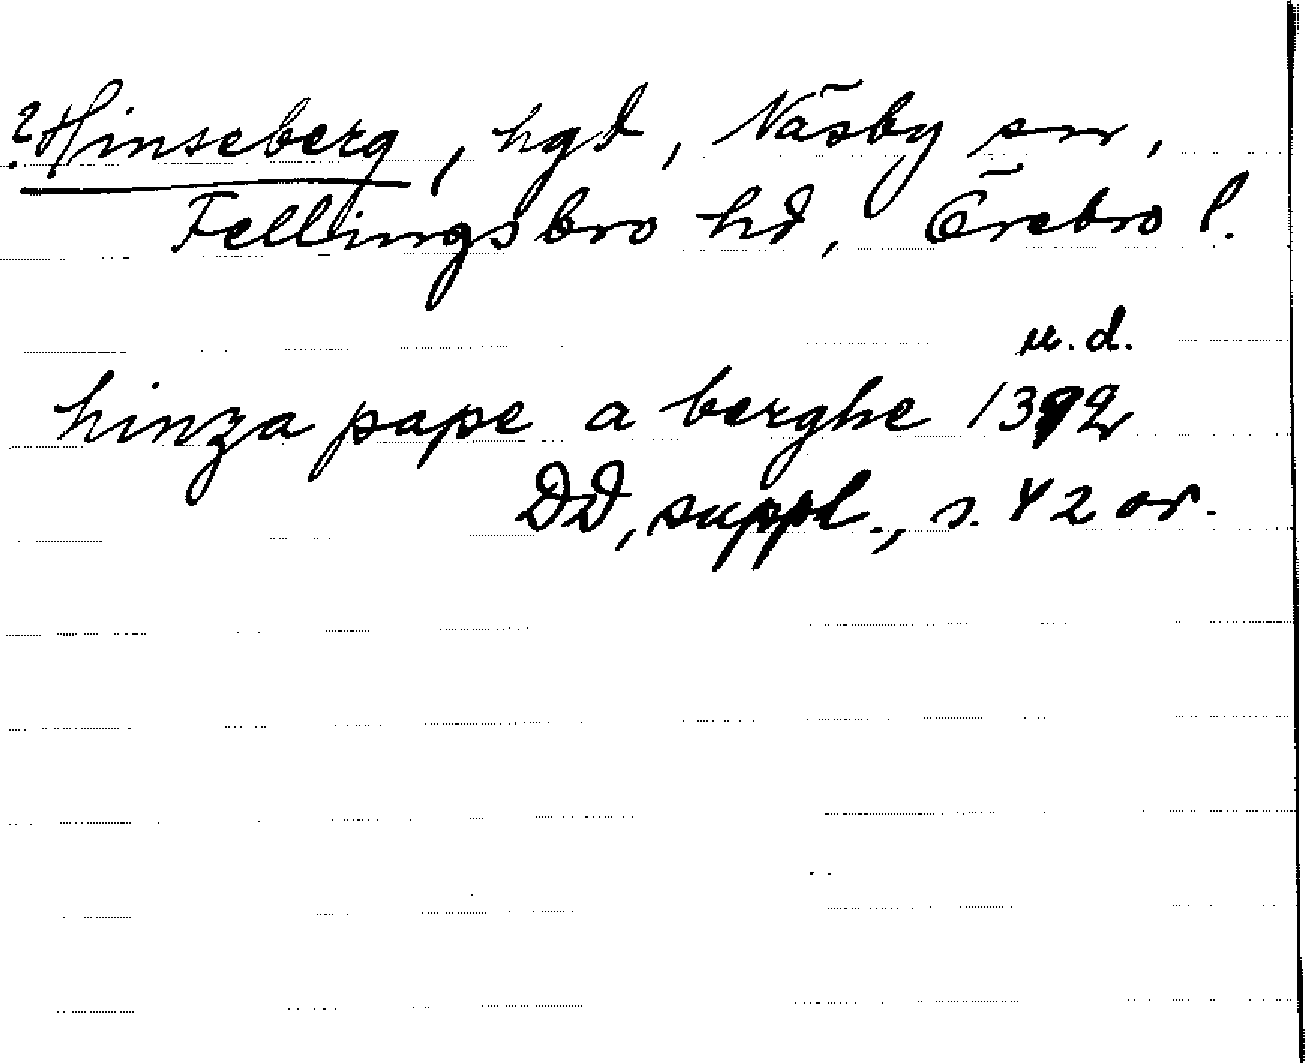 ? Hinseberg, hgd, Näsby sn,
Fellingsbro hd, Örebro l.
u.d.
hinza pape a berghe 1392
DD, suppl., s. 42 or.